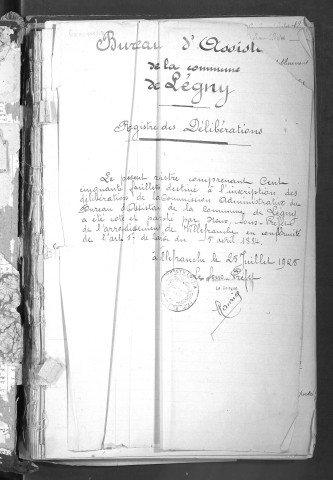 Bureau d'Assist
de la commune
de Légny
Registre des Délibérations
Le présent registre comprenant Cent
cinquante feuillets destiné à l'inscription des
délibération de la Commission Administrative du
Bureau d'Assistance de la Commune de Légny
a été coté et paraphé par Nous, Sous-Préfet
de l'arrondissement de Villefranche en conformité
de l'art 5 de la loi du 5 avril 1884.
Villefranche le 26 Juillet 1926
Le Sous-Préfet